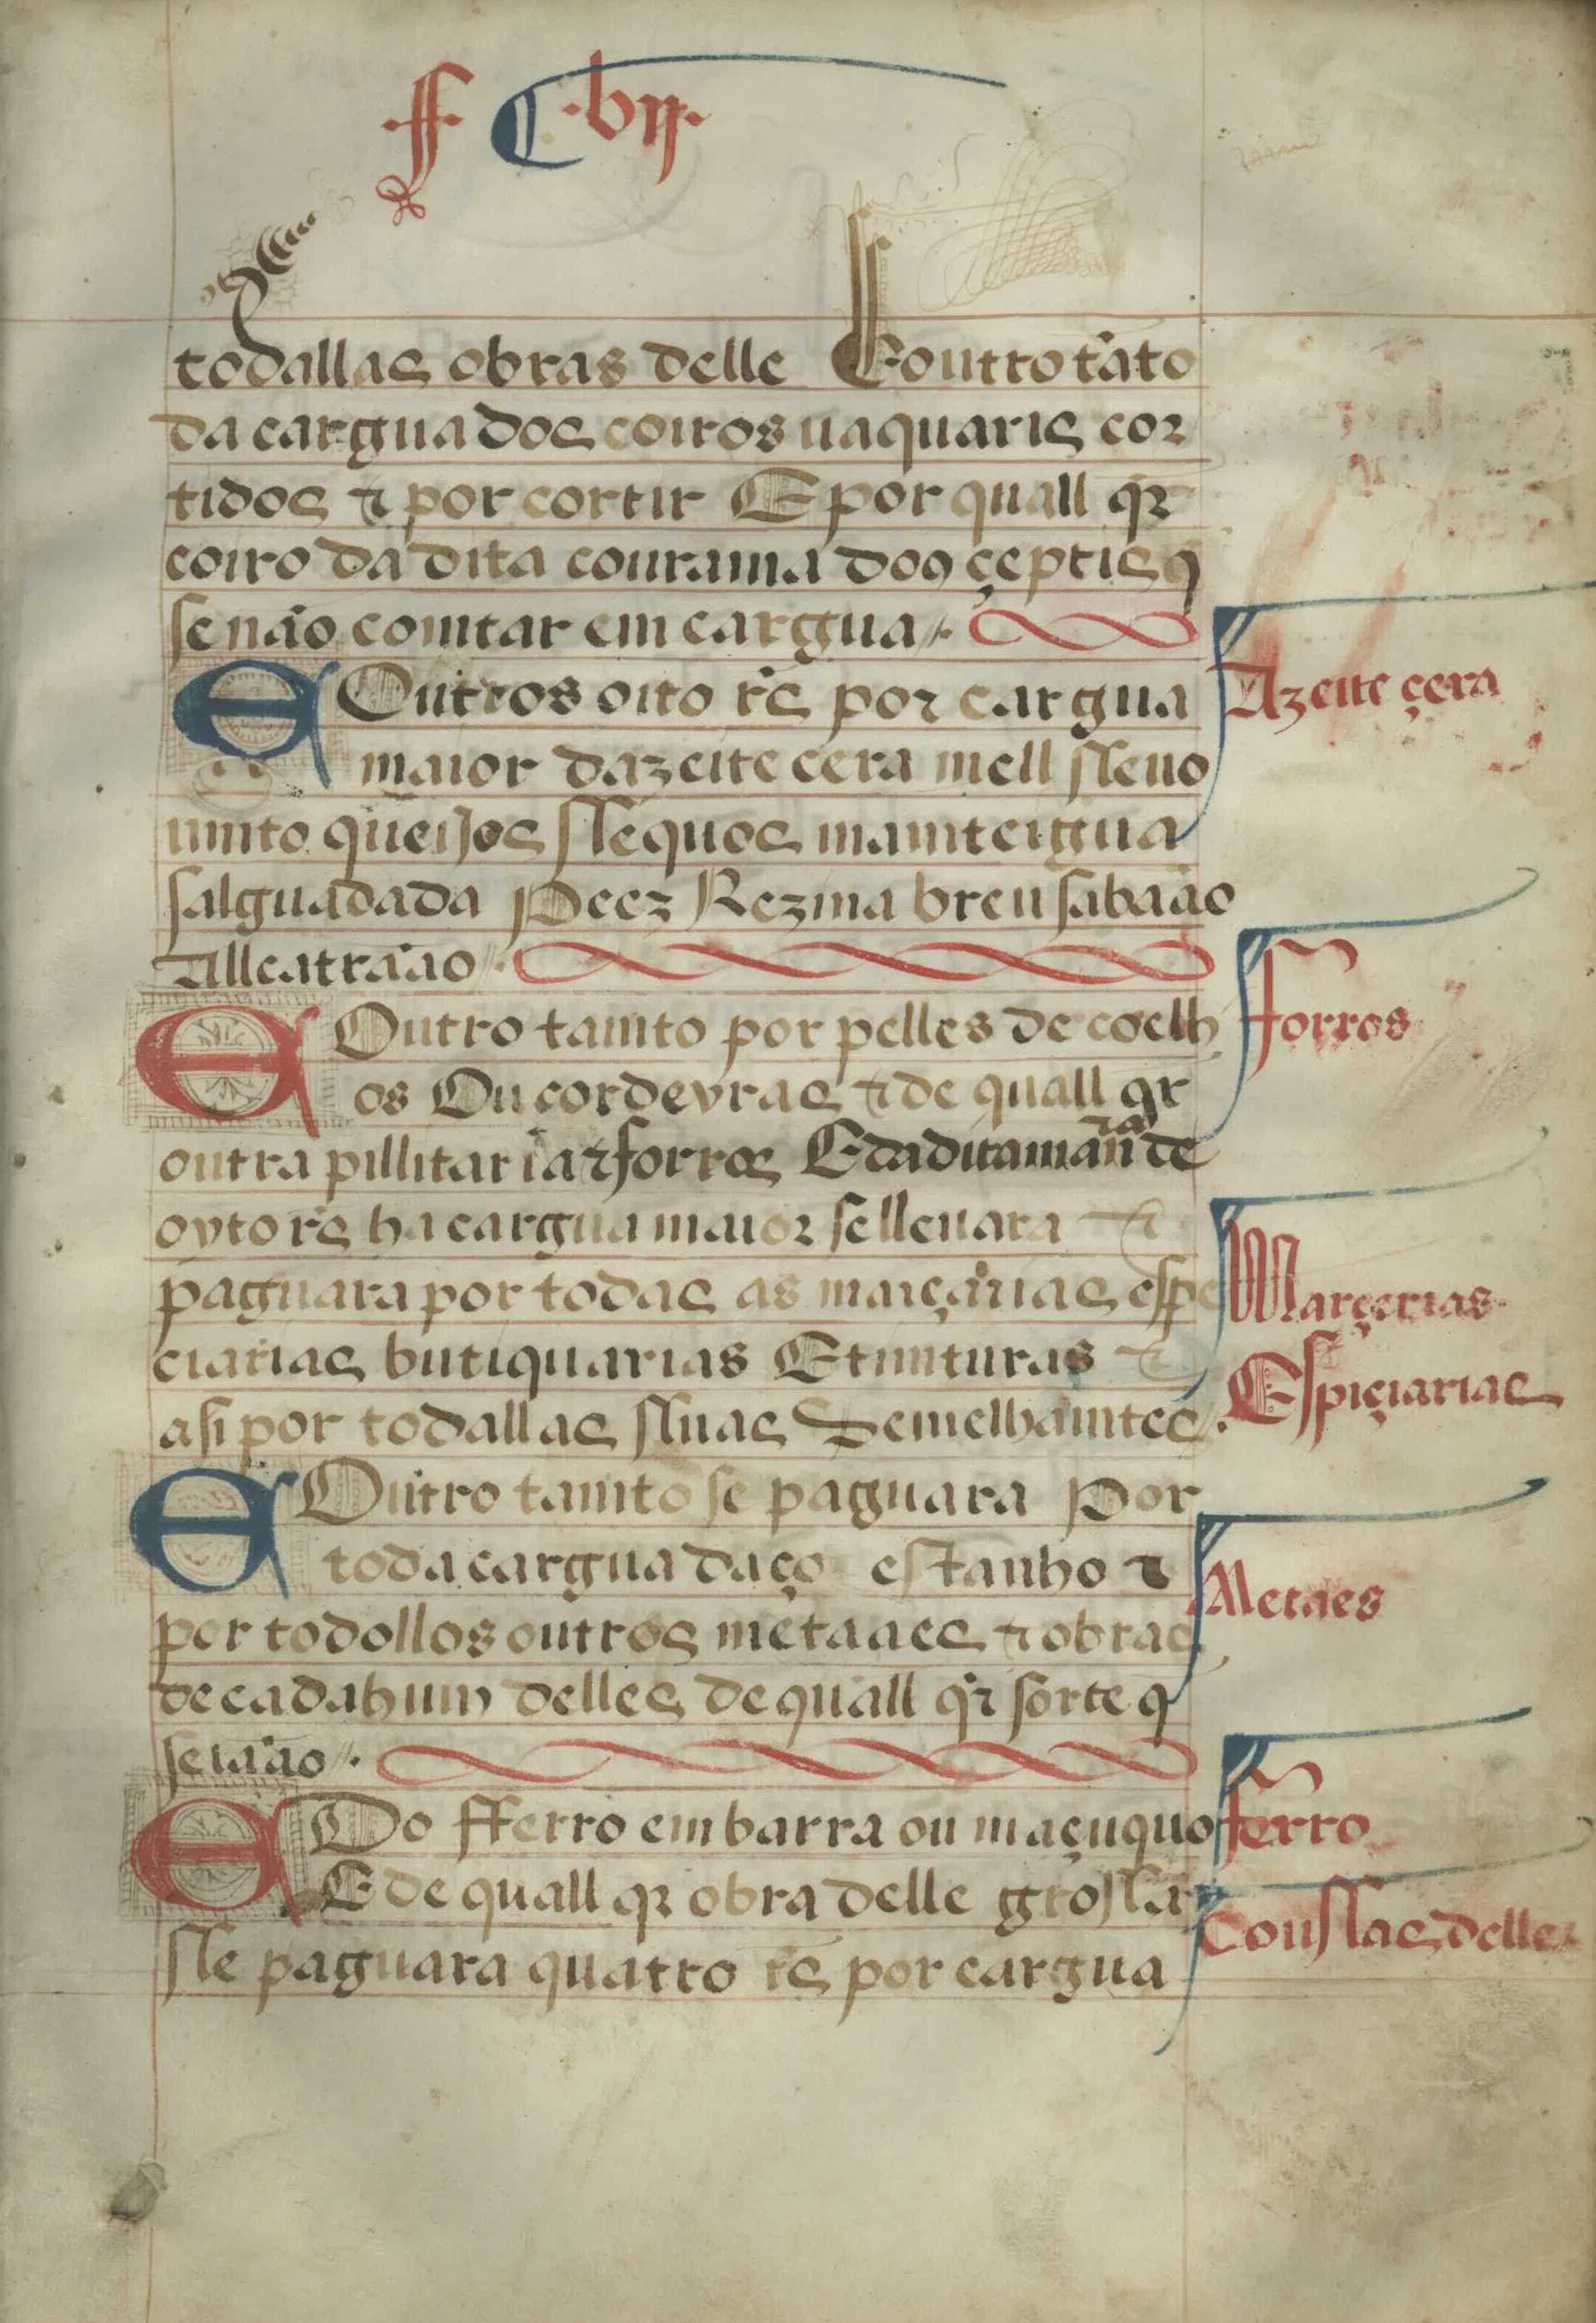 ·ff· C ·bij·
todallas obras delle E outro tãto
da cargua dos coiros uaquaris cor
tidos ⁊ por cortir E por quall qr
coiro da dita courama dos çeptis q
se não comtar em cargua //·
E Outros oito rs por cargua
Azeite çera
maior dazeite cera mell sseuo
umto queijos ssequos mamteigua
salguadada Peez Rezina breu sabaão
Allcatraão //·
E Outro tamto por pelles de coelh
forros
os Ou cordeyras ⁊ de quall qr
outra pillitaria ⁊ forros E da dita manra de
oyto rs ha cargua maior se lleuara ⁊
paguara por todas as marçarias espe
Marçerias
ciarias butiquarias E timturas ⁊
Espiçiarias
asi por todallas ssuas Semelhamtes //·
E Outro tamto se paguara Por
toda cargua daço estanho ⁊
Metaes
por todollos outros metaaes ⁊ obras
de cada hum delles de quall qr sorte q
seiaão //·
E Do fferro em barra ou maçuquo
ferro
E de quall qr obra delle grossa
Coussas delle
sse paguara quatro rs por cargua